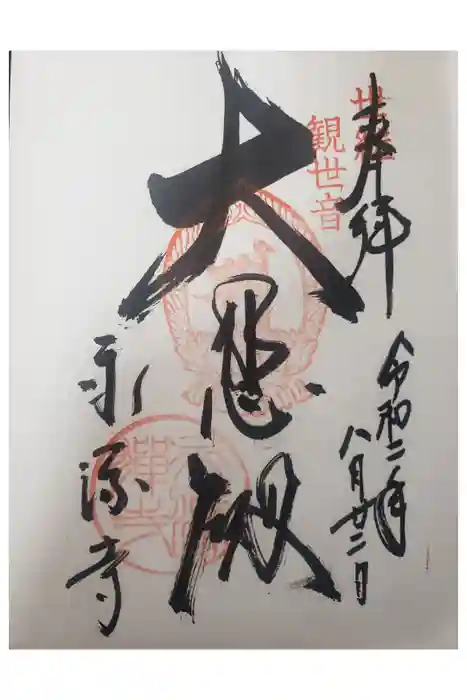 奉拝
世継
観世音
令和二年
八月廿二日
大悲殿
永源寺